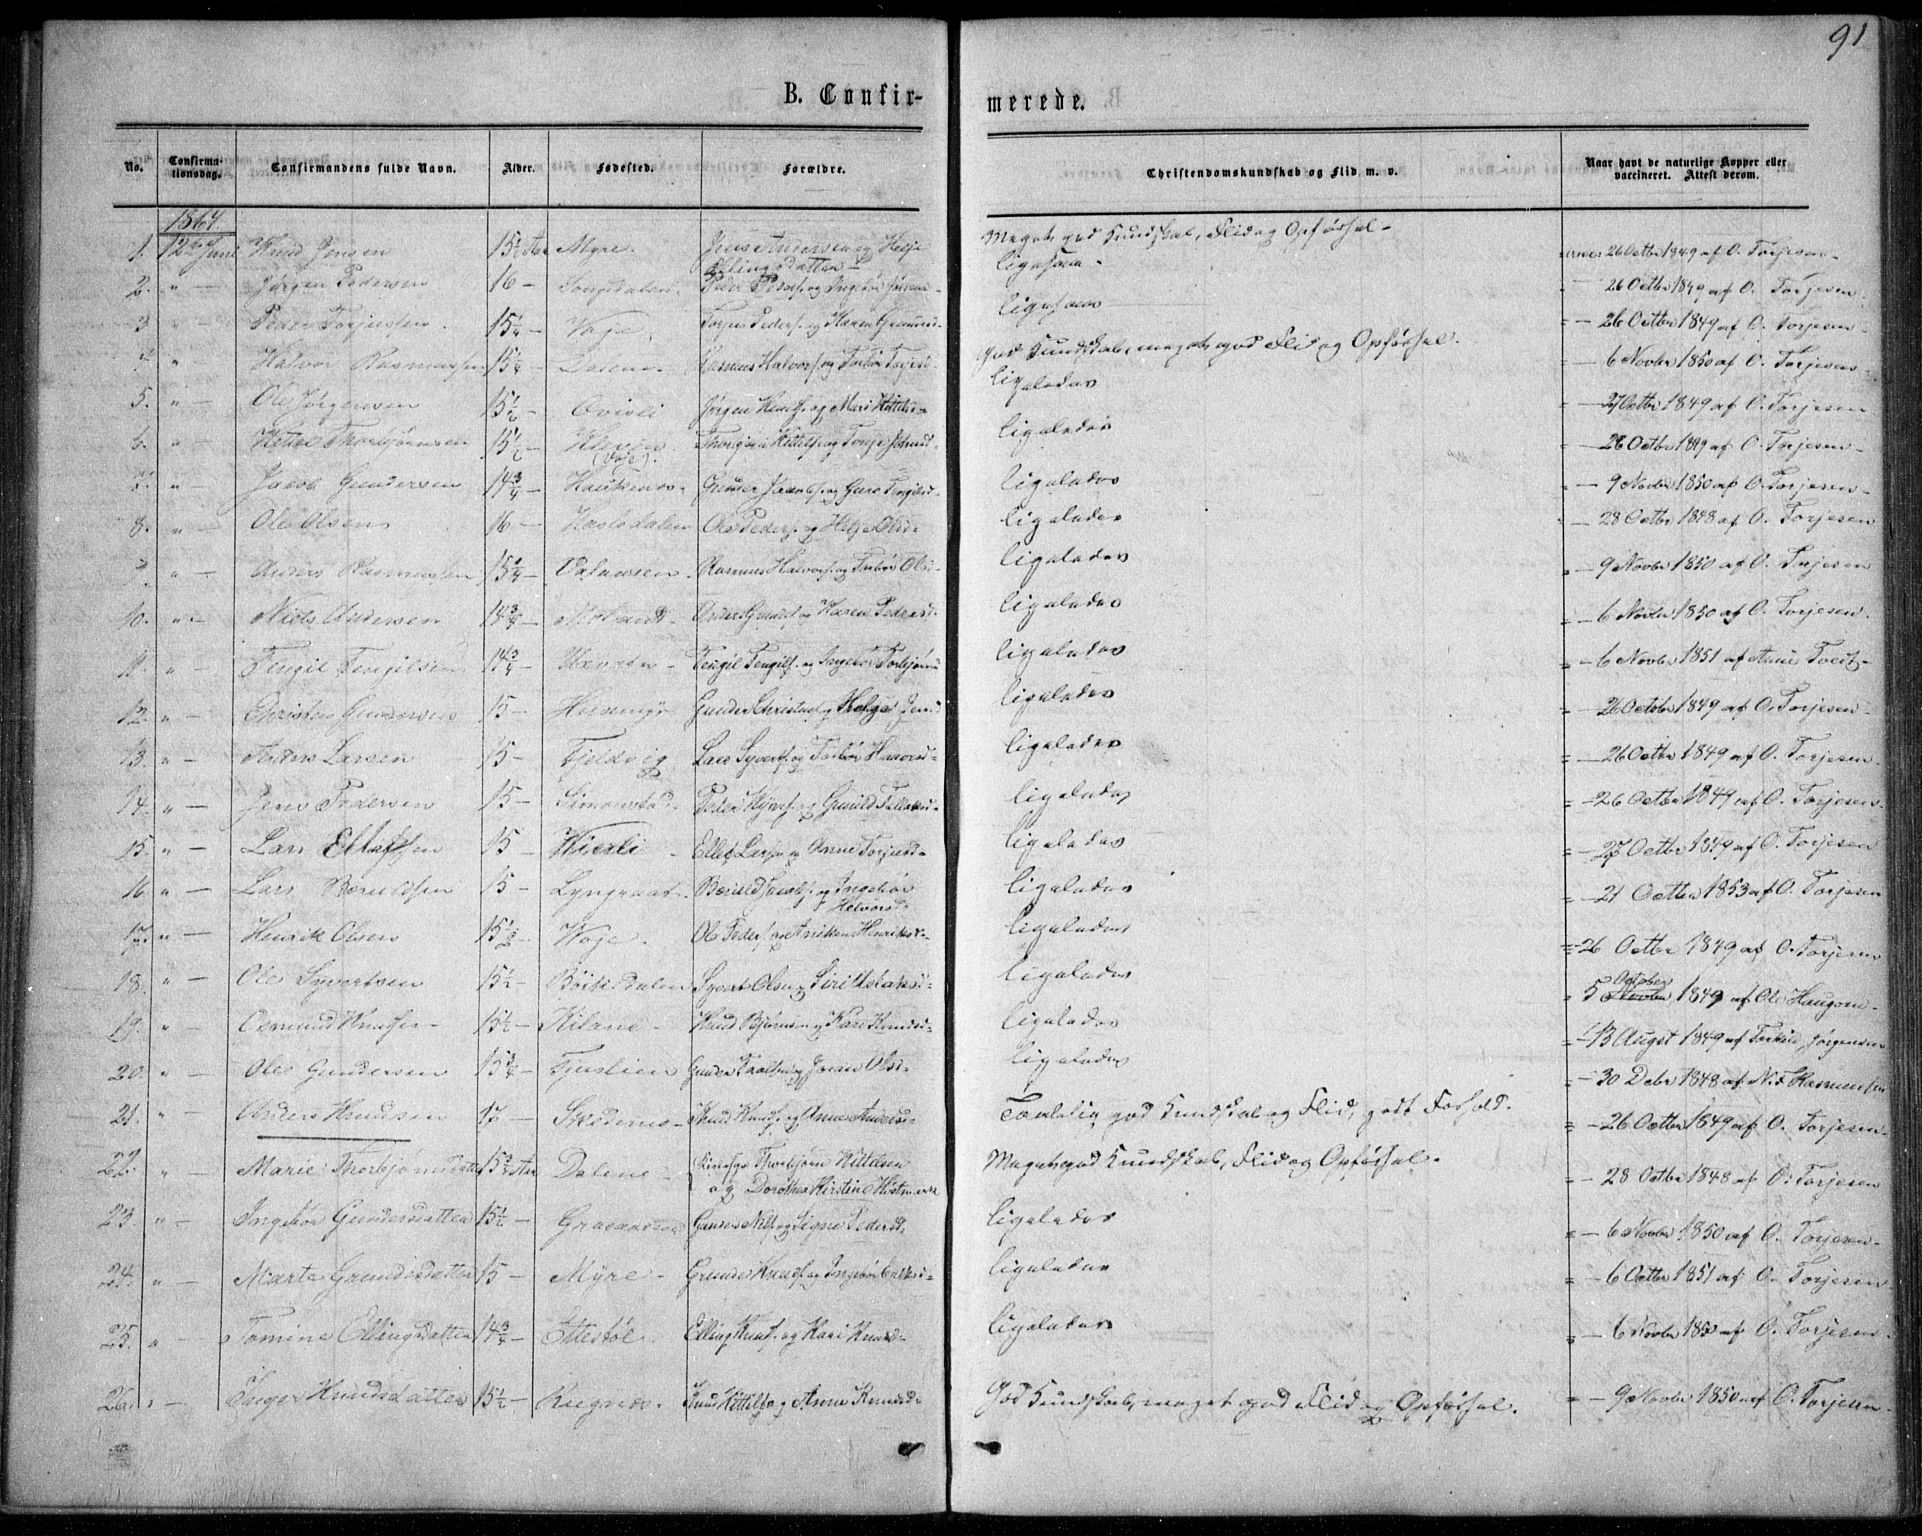 91
B. Confir-
merede.
No.
Confirma-
tionsdag.
Confirmandens fulde Navn.
Alder.
Fødested.
Forældre.
Christendomskundskab og Flid m. v.
Naar havt de naturlige Kopper eller
vaccineret. Attest derom.
1864
1. 12te Juni Knud Jensen 15½ Aar Myre. Jens Andersen og Helje Ellingsdatter Meget god Kundskab, Flid og Opførsel. 26 Octbr 1849 af O. Torjesen
2. " — Jørgen Pedersen 16 — Songdalen Peder og Ingebor ligesaa. — 26 Octbr 1849 af O. Torjesen
3 " — Peder Torjussen 15¼ — Voje. Torjus Peders. og Karen Gunnersd. ligesaa — 26 Octbr 1849 af O. Torjesen
4 " Halvor Rasmussen 15¼ — Dalene. Rasmus Halvors. og Torbor god Kundskab, meget god Flid og Opførsel. — 6 Novbr 1850 af O. Torjesen
5. " — Ole Jørgensen 15½ — Ovisli Jørgen Knuds. og Mari Kittelsd. ligeledes — 27 Octbr 1849 af O. Torjesen
6. " — Kittel Thorbjørnsen 15½ — (Voje). Kittels. og Tonje ligeledes — 28 Octbr 1849 af O. Torjesen
7. " — Jacob Gundersen 14¾ — Haukenes. Gunder Jacobs. og Guro Tengilsd. ligeledes — 9 Novbr 1850 af O. Torjesen
8. " — Ole Olsen 16 — Karlsdalen Ole Peders. og Helje Olsd. ligeledes — 28 Octbr 1848 af O. Torjesen
9. " — Anders Rasmussen 15¼ — Rasmus Halvors. og Torbor Olsd. ligeledes — 9 Novbr 1850 af O. Torjesen
10. " — Niels Andersen 14¾ — Moland. Anders Gunds. og Karen Pedersd. ligeledes — 6 Novbr 1850 af O. Torjesen
11. " — Tengil Tengilsen 14¾ — Tengil Tengils. og Ingebor Torbjørnsd ligeledes — 6 Novbr 1851 af Tvedt
12. " — Christen Gundersen 15 — Gunder Christens. og Helge Jensd ligeledes — 26 October 1849 af O. Torjesen
13. " — Anders Larsen 15 — Fjeldvig Lars Syverts. og Torbor ligeledes — 26 Octbr 1849 af O. Torjesen
14. " — Jens Pedersen 15 — Simonstad. Peder og Gunild Tellefsd. ligeledes — 26 Octbr 1849 af O. Torjesen
15. " — Lars Ellefsen 15 — Ellef Lars. og Anne Torjusd. ligeledes — 27 Octbr 1849 af O. Torjesen
16 " — Lars Beruldsen 15 — Lyngraat. Beruld Jacobs. og Ingebor Halvorsd. ligeledes — 21 Octbr 1853 af O. Torjesen
17. " — Henrik Olsen 15½ — Voje. Ole Peders. og Aniken Henriksd. ligeledes — 26 Octbr 1849 af O. Torjesen
18. " — Ole Syvertsen 15½ — Bøiksdalen Syvert Olsen og Siri Aslaksd. ligeledes 5 October 1849 af Ole Haugom
19. " — Osmund Knuds. 15½ — Kilane — Knud Bjørnsen og Kari Knudsd. ligeledes — 13 August 1849 af Jørgensen
20. " — Ole Gundersen 15¾ — Tjuslien Gunder og Olsd. ligeledes — 30 Debr 1848 af Nils Rasmussen
21. " — Anders Knudsen 17 — Skedenes — Knud Knuds. og Anne Andersd. Temmelig god Kundskab og Flid, godt Forhold. — 26 Octbr 1849 af O. Torjesen
22. " Marie Thorbjørnsdatter 15¾ Aar Dalene — Thorbjørn Kittelsen og Dorothea Kirstine Meget god Kundskab, Flid og Opførsel. — 28 Octbr 1848 af O. Torjesen
23 " — Ingebor Gundersdatter 15½ — Gunder Nils. og Signe Pedersd. ligeledes — 6 Novbr 1850 af O. Torjesen
24. " — Marte Gundersdatter 15 — Myre — Gunder Knuds. og Ingebor ligeledes — 6 Octbr 1851 af O. Torjesen
25. " — Tomine Ellingsdatter 14¾ — Ettestøl Elling Knuds. og Kari Knudsd. ligeledes — 6 Novbr 1850 af O. Torjesen
26. " — Inger Knudsdatter 15½ — Knud Kittels. og Anne Knudsd. God Kundskab, meget god Flid og Opførsel. — 9 Novbr 1850 af O. Torjesen